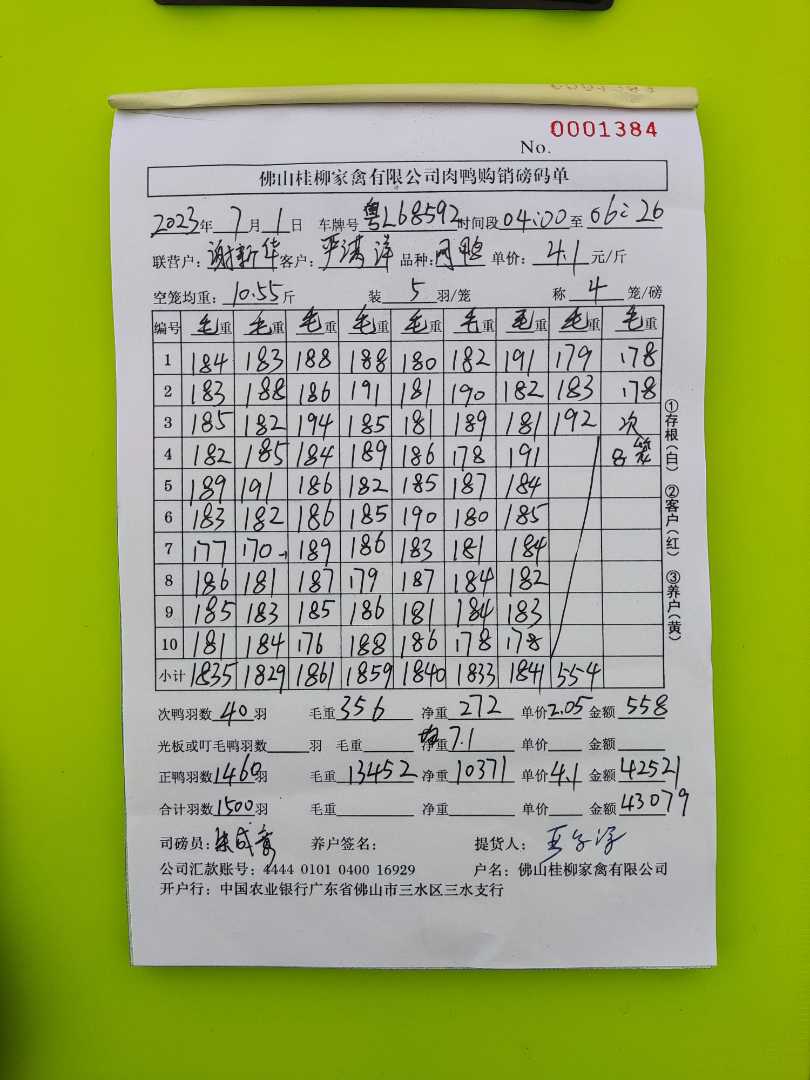 No. 0001384
佛山桂柳家禽有限公司肉鸭购销磅码单
2023年7月1日 车牌号粤L68592时间段04:00至06:26
联营户:谢新华客户:严满洋 品种:肉鸭 单价:4.1元/斤
空笼均重:10.55斤 装5羽/笼 称4笼/磅
编号 毛重 毛重 毛重 毛重 毛重 毛重 毛重 毛重 毛重
1 184 183 188 188 180 182 191 179 178
2 183 188 186 191 181 190 182 183 178
3 185 182 194 185 181 189 181 192 次
4 182 185 184 189 186 178 191 8笼
5 189 191 186 182 185 187 184
6 183 182 186 185 190 180 185
7 177 170 189 186 183 181 184
8 186 181 187 179 187 184 182
9 185 183 185 186 181 184 183
10 181 184 176 188 186 178 178
小计 1835 1829 1861 1859 1840 1833 1841 554
次鸭羽数40羽 毛重356 净重272 单价2.05 金额558
光板或叮毛鸭羽数 羽 毛重 均重7.1 单价 金额
正鸭羽数1460羽 毛重13452 净重10371 单价4.1 金额42521
合计羽数1500羽 毛重 净重 单价 金额43079
司磅员: 养户签名: 提货人:
公司汇款账号:4444 0101 0400 16929 户名:佛山桂柳家禽有限公司
开户行:中国农业银行广东省佛山市三水区三水支行
①存根(白) ②客户(红) ③养户(黄)